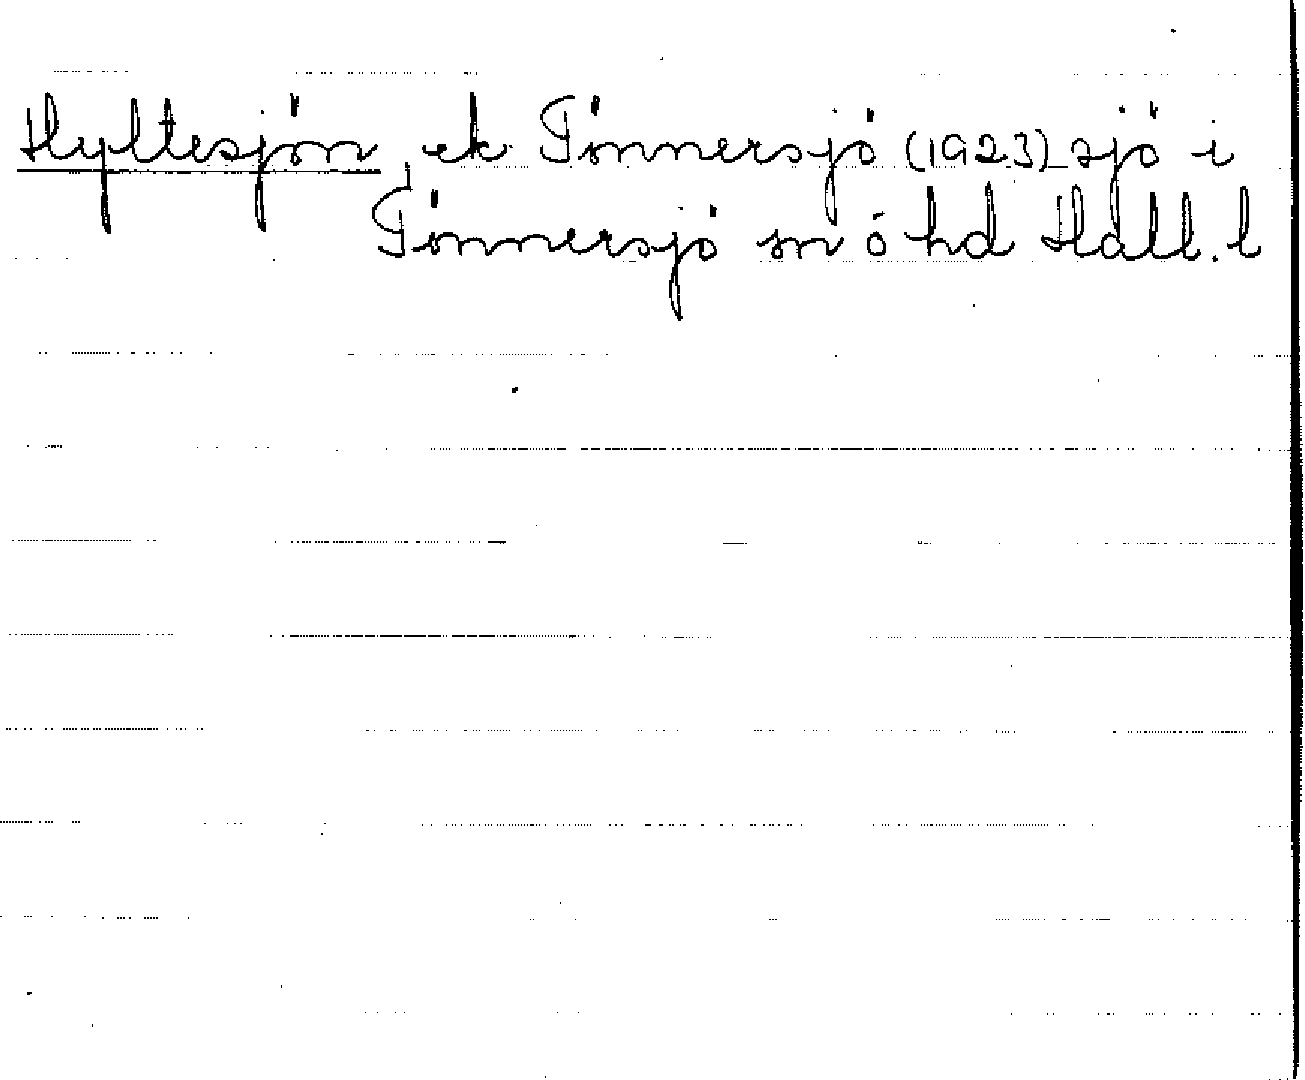 Hyltesjön, ek Tönnersjö (1923) sjö i
Tönnersjö sn ö hd Hall. l